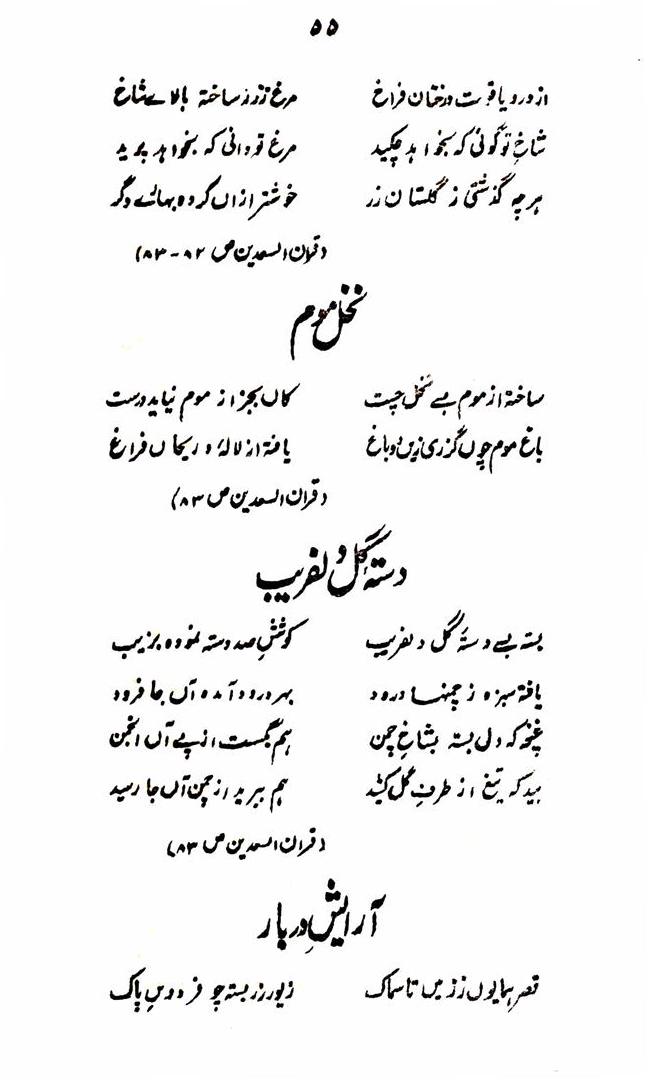 ۵۵
از در و یاقوت درختان فراغ مرغ ز زر ساختہ بالاے شاخ
شاخ تو گوئی کہ بخواہد چکید مرغ تو دانی کہ بخواہد پرید
ہرچہ گذشتی ز گلستان زر خوشتر ازاں کردہ بہائے دگر
(قران السعدین ص ۸۲ - ۸۳)
نخل موم
ساختہ از موم بسے نخل چست کاں بجز از موم نیاید درست
باغ موم چوں گزری زیں دو باغ یافتہ از لالہ و ریحاں فراغ
(قران السعدین ص ۸۳)
دستۂ گل دلفریب
بستہ بسے دستۂ گل دلفریب کوشش صد دستہ نمودہ بزیب
یافتہ سبزہ ز چمنہا درود بہر درود آمدہ آں جا فرود
غنچہ کہ دل بستہ بشاخ چمن ہم بگسست از پے آں انجمن
بید کہ تیغ از طرف گل کشید ہم ببرید از چمن آں جا رسید
(قران السعدین ص ۸۳)
آرایشِ دربار
قصر ہمایوں ز زمیں تا سماک زیور زر بستہ چو فردوسِ پاک